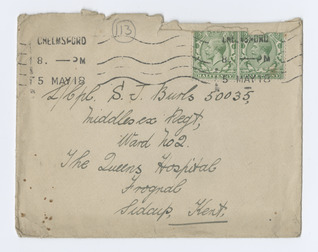 CHELMSFORD
8. — PM
5 MAY 18
113
CHELMSFORD
— PM
MAY 18
L/Cpl. S. J. Burls 50035,
Middlesex Regt,
Ward No 2.
The Queens Hospital
Frognal
Sidcup, Kent.